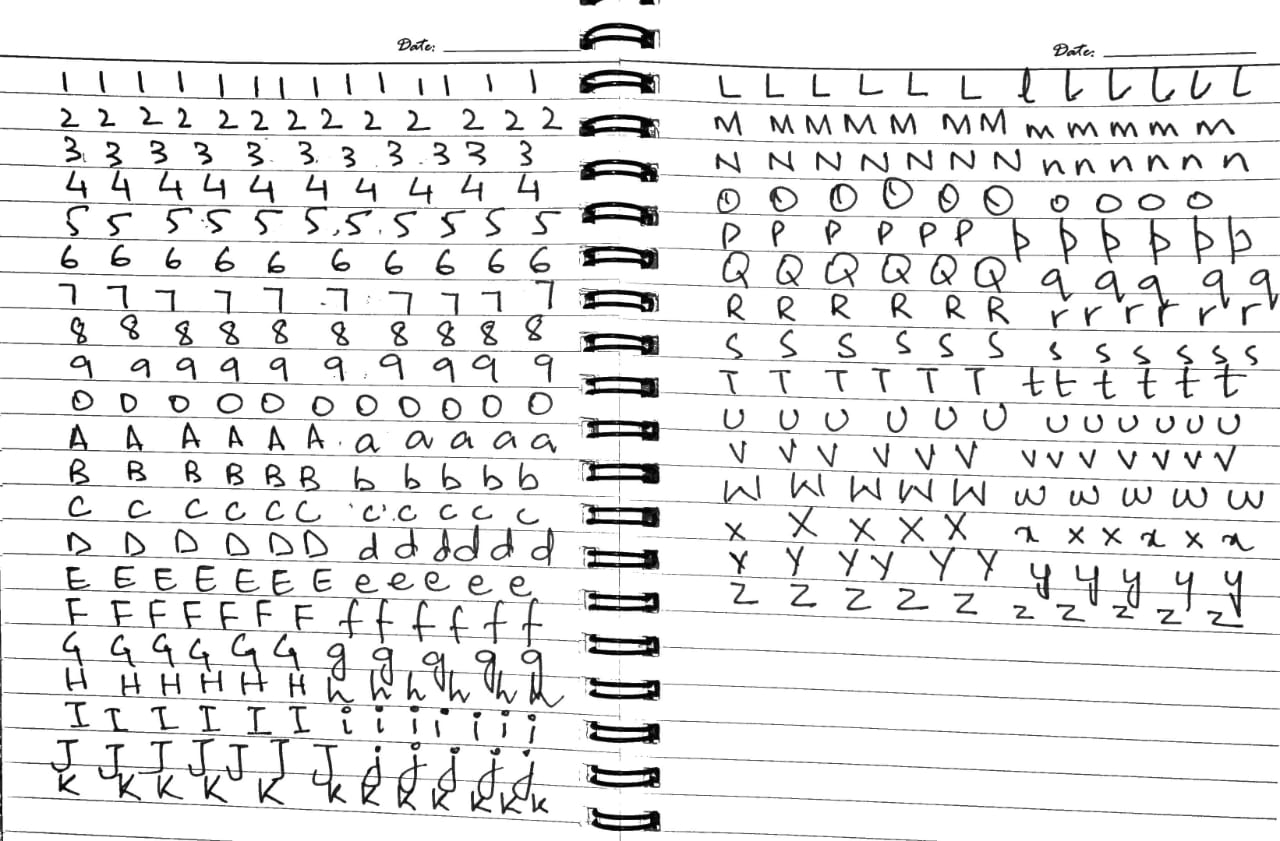 Date:
1 1 1 1 1 1 1 1 1 1 1 1 1 1
2 2 2 2 2 2 2 2 2 2 2 2 2
3 3 3 3 3 3 3 3 3 3 3
4 4 4 4 4 4 4 4 4 4
5 5 5 5 5 5 5 5 5 5 5
6 6 6 6 6 6 6 6 6 6
7 7 7 7 7 7 7 7 7 7
8 8 8 8 8 8 8 8 8 8
9 9 9 9 9 9 9 9 9 9
0 0 0 0 0 0 0 0 0 0 0
A A A A A A a a a a a
B B B B B B b b b b b
C C C C C C c c c c c
D D D D D D d d d d d d
E E E E E E E e e e e e
F F F F F F F f f f f f f
G G G G G G g g g g g
H H H H H H h h h h h h
I I I I I I i i i i i i i
J J J J J J J j j j j j
K K K K K k k k k k k k
Date:
L L L L L L l l l l l l
M M M M M M M m m m m m
N N N N N N N n n n n n n
O O O O O O o o o o
P P P P P P p p p p p p
Q Q Q Q Q Q q q q q q
R R R R R R r r r r r r
S S S S S S s s s s s s
T T T T T T t t t t t t
U U U U U U u u u u u u
V V V V V V v v v v v v v
W W W W W w w w w w
X X X X X x x x x x x
Y Y Y Y Y Y y y y y y
Z Z Z Z Z z z z z z